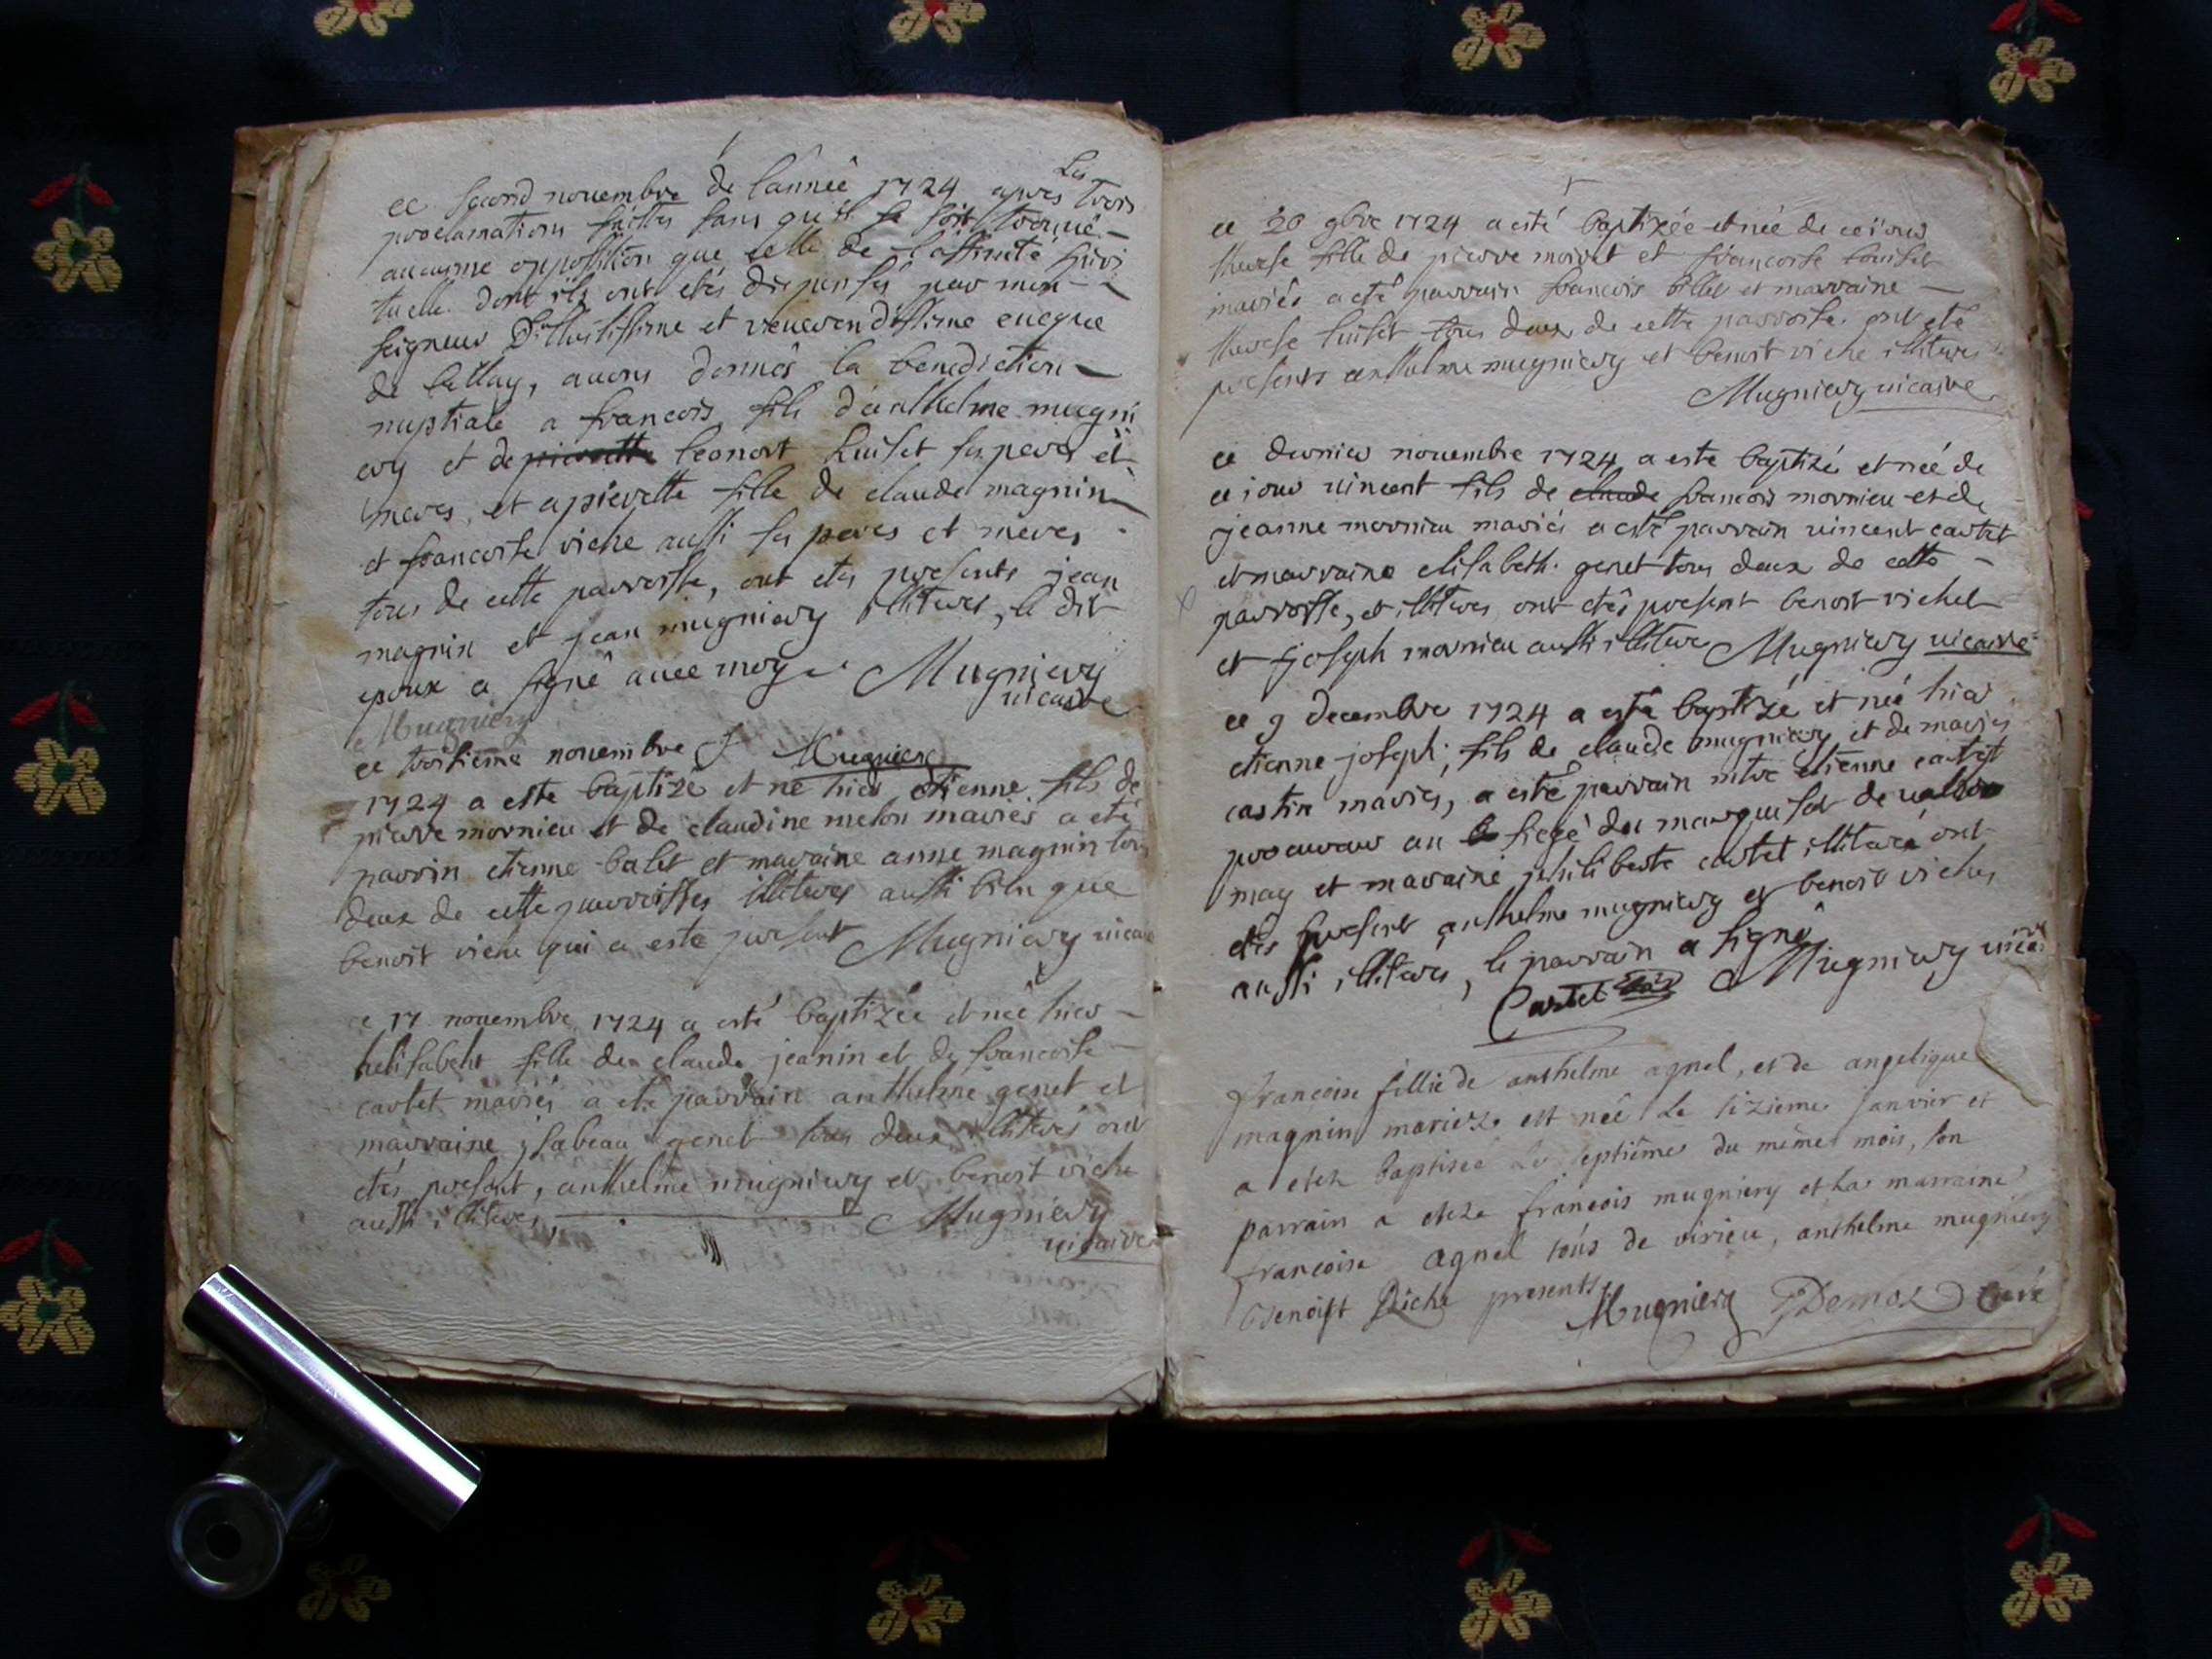 ce second nouembre de l'année 1724 apres Les trois
proclamations faittes sans qu'il se soit trouué
aucunne opposition que celle de l'affinité spiri
tuelle dont ils ont etés dispensés par mon
seigneur L'illustrissime et reuerendissime eueque
de bellay, auons donnés la benediction
nuptiale a francois fils d'anthelme mugni
ery et de pierrette leonort luiset ses peres et
meres, et a pierette fille de claude magnin
et francoise viche aussi ses peres et meres
tous de cette parroisse, ont etes presents jean
magnin et jean mugniery illiteres, le dit
epoux a signé auec moy Mugniery
uicaire
Mugniery
ce troisieme nouembre J Mugniery
1724 a este baptizé et né hier etienne fils de
pierre mornieu et de claudine melon mariés a eté
parrin etienne balet et maraine anne magnin tous
deux de cette parroisses illiteres aussi bien que
benoit viche qui a este present Mugniery uicaire
ce 17 nouembre 1724 a esté baptizée et née hier
helisabeht fille de claude jeanin et de francoise
cartet mariés a ete parrain anthelme genet et
marraine ysabeau genet tous deux illiterés ont
etés present, anthelme mugniery et benoit viche
aussi illiteres Mugniery
uicaire
ce 20 9bre 1724 a esté baptizée et née de ce iour
therese fille de pierre moiret et francoise luiset
mariés a eté parrain francois billet et marraine
therese luiset tous deux de cette parroisse ont eté
presents anthelme mugniery et benoit viche illiteres
Mugniery uicaire
ce dernier nouembre 1724 a este baptizé et neé de
ce iour uincent fils de claude francois mornieu et de
jeanne mornieu mariés a esté parrain uincent cartet
et marraine elisabeth genet tous deux de cette
parroisse, et illiteres ont etés present benoit viche
et joseph mornieu aussi illitere Mugniery uicaire
ce 9 decembre 1724 a esté baptizé et neé hier
etienne joseph, fils de claude mugniery et de marie
castin mariés, a esté parrain mtre etienne cartet
procureur au siegé du marquisat de
may et maraine philiberte cartet illiteré ont
etés present anthelme mugniery et benoit viche
aussi illiteres, le parrain a signé
Cartet Mugniery uicaire
francoise fillie de anthelme agnel, et de angelique
magnin mariez est neé le sizieme janvier et
a etez baptiseé le septième du même mois, son
parrain a eteze francois mugniery et la marraine
francoise agnel tous de virieu, anthelme mugniery
benoist Viche presents
Mugniery Demoz Curé